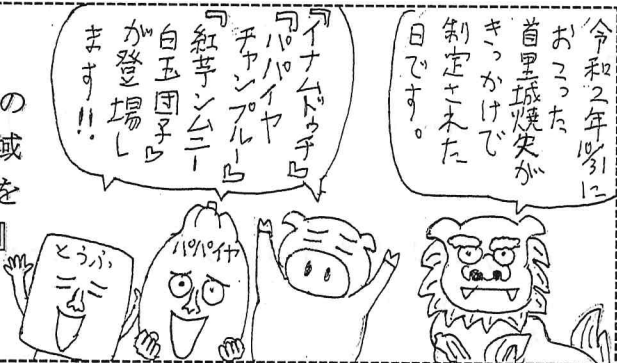 令和2年10/31に
おこった
首里城焼失が
きっかけで
制定された
日です。
『イナムドゥチ』
『パパイヤ
チャンプルー』
『紅芋ンムニー
白玉団子』
が登場し
ます!!
パパイヤ
とうふ
の域を』